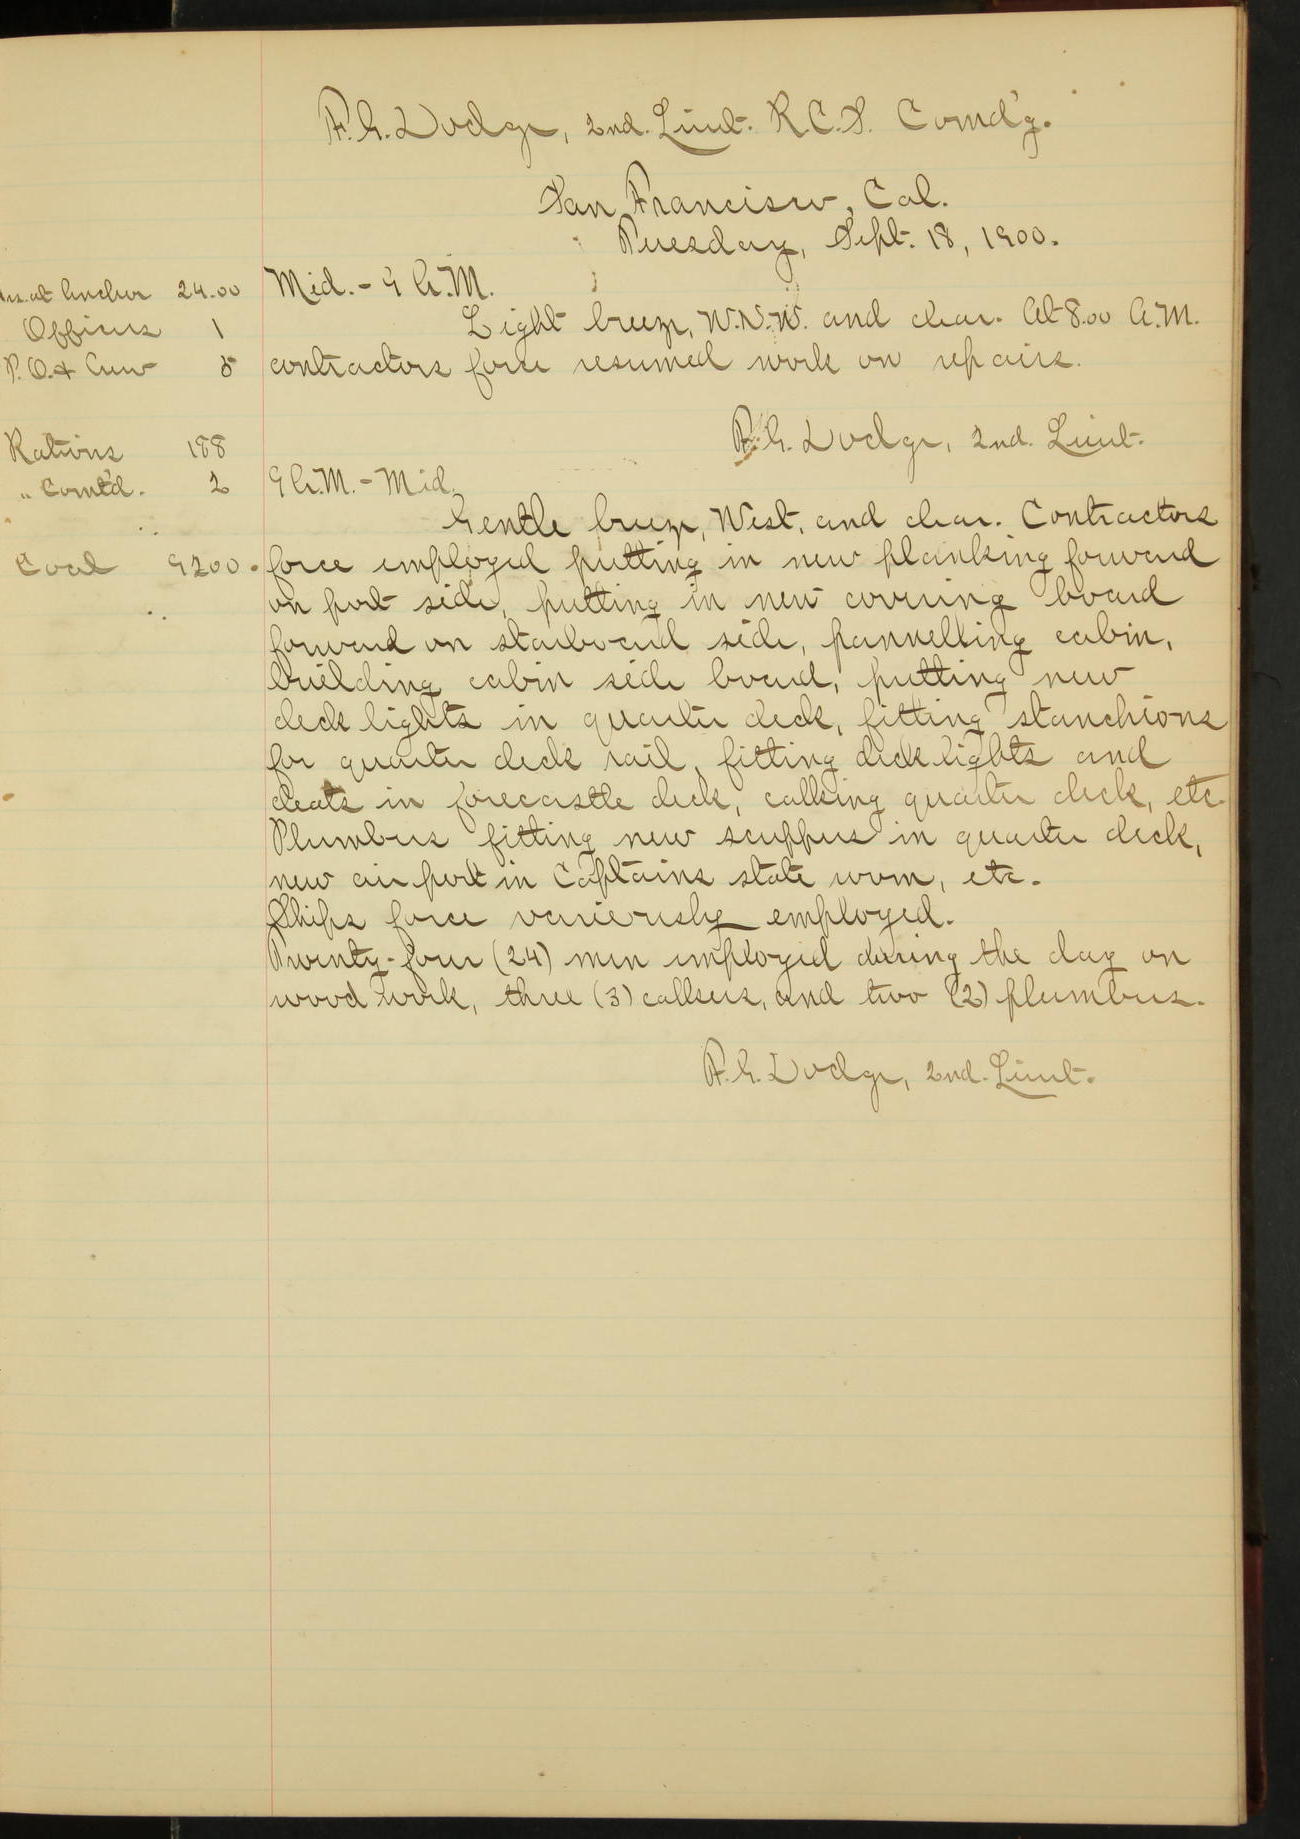 F. G. Dodge, 2nd. Lieut. R. C. S. Comd'g.
San Francisco, Cal.
Tuesday, Sept. 18, 1900.
Hrs. at Anchor 24.00 Mid. - 9 A.M.
Officers 1 Light breeze, W.N.W. and clear. At 8.00 A.M.
P. O. & Crew 5 contractors force resumed work on repairs.
F. G. Dodge, 2nd. Lieut.
Rations 188
" Comt'd. 2 9 A.M. - Mid.
Gentle breeze, West, and clear. Contractors
Coal 9200. force employed putting in new planking forward
on port side, putting in new covering board
forward on starboard side, pannelling cabin,
building cabin side board, putting new
deck lights in quarter deck, fitting stanchions
for quarter deck rail, fitting deck lights and
cleats in forecastle deck, calking quarter deck, etc
Plumbers fitting new scuppers in quarter deck,
new air port in Captains state room, etc.
Ships force variously employed.
Twenty-four (24) men employed during the day on
wood work, three (3) calkers, and two (2) plumbers.
F. G. Dodge, 2nd. Lieut.